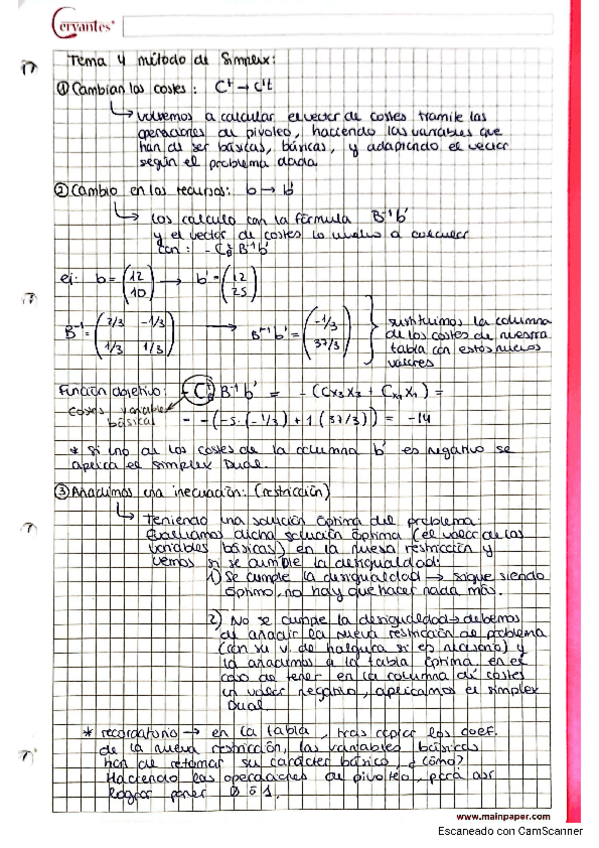 Cervantes®
Tema 4 método de Simplex:
① Cambian los costes: Cᵗ → C'ᵗ
volvemos a calcular el vector de costes tramite las
operaciones de pivoteo, haciendo las variables que
han de ser básicas, básicas, y adaptando el vector
según el problema dado
② Cambio en los recursos: b → b'
los calculo con la fórmula B⁻¹b'
y el vector de costes lo vuelvo a calcular
con: - Cᵗ_B B⁻¹b'
ej: b = (12 10) → b' = (12 25)
B⁻¹ = (2/3 -1/3 1/3 1/3) → B⁻¹b' = (-1/3 37/3)
sustituimos la columna
de los costes de nuestra
tabla con estos nuevos
valores
Función objetivo: - Cᵗ_B B⁻¹b' = - (Cx₃X₃ + Cx₁X₁) =
costes variable
básica
= -(-5·(-1/3) + 1(37/3)) = -14
* si uno de los costes de la columna b' es negativo se
aplica el simplex Dual.
③ Añadimos una inecuación: (restricción)
Teniendo una solución óptima del problema:
Evaluamos dicha solución óptima (el valor de las
variables básicas) en la nueva restricción y
vemos si se cumple la desigualdad:
1) Se cumple la desigualdad → sigue siendo
óptimo, no hay que hacer nada más.
2) No se cumple la desigualdad → debemos
de añadir la nueva restricción al problema
(con su v. de holgura si es necesario) y
la añadimos a la tabla óptima, en el
caso de tener en la columna de costes
un valor negativo, aplicamos el simplex
Dual.
* recordatorio → en la tabla, tras copiar los coef.
de la nueva restricción, las variables básicas
han de retomar su carácter básico, ¿cómo?
Haciendo las operaciones de pivoteo, para así
lograr poner 0 ó 1.
www.mainpaper.com
Escaneado con CamScanner